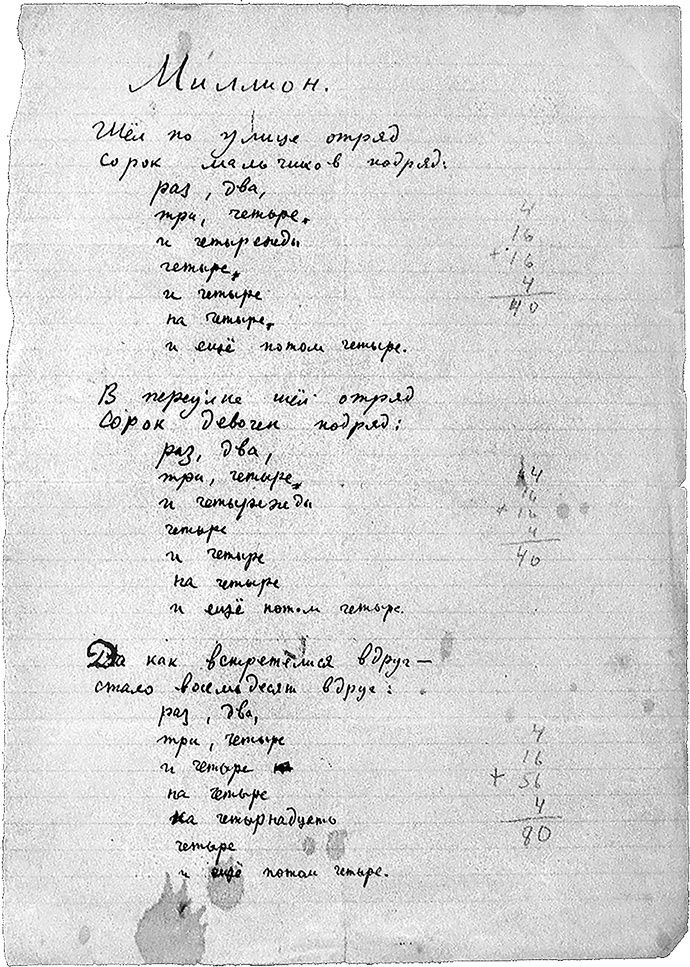 Миллион.
Шёл по улице отряд
Сорок мальчиков подряд:
раз, два,
три, четыре,
и четырежды
четыре,
и четыре
на четыре,
и ещё потом четыре.
4
16
+ 16
4
40
В переулке шёл отряд
Сорок девочек подряд:
раз, два,
три, четыре,
и четырежды
четыре
и четыре
на четыре
и ещё потом четыре.
4
16
+ 16
4
40
Да как встретилися вдруг –
стало восемьдесят вдруг:
раз, два,
три, четыре
и четыре
на четыре
на четырнадцать
четыре
и ещё потом четыре.
4
16
+ 56
4
80